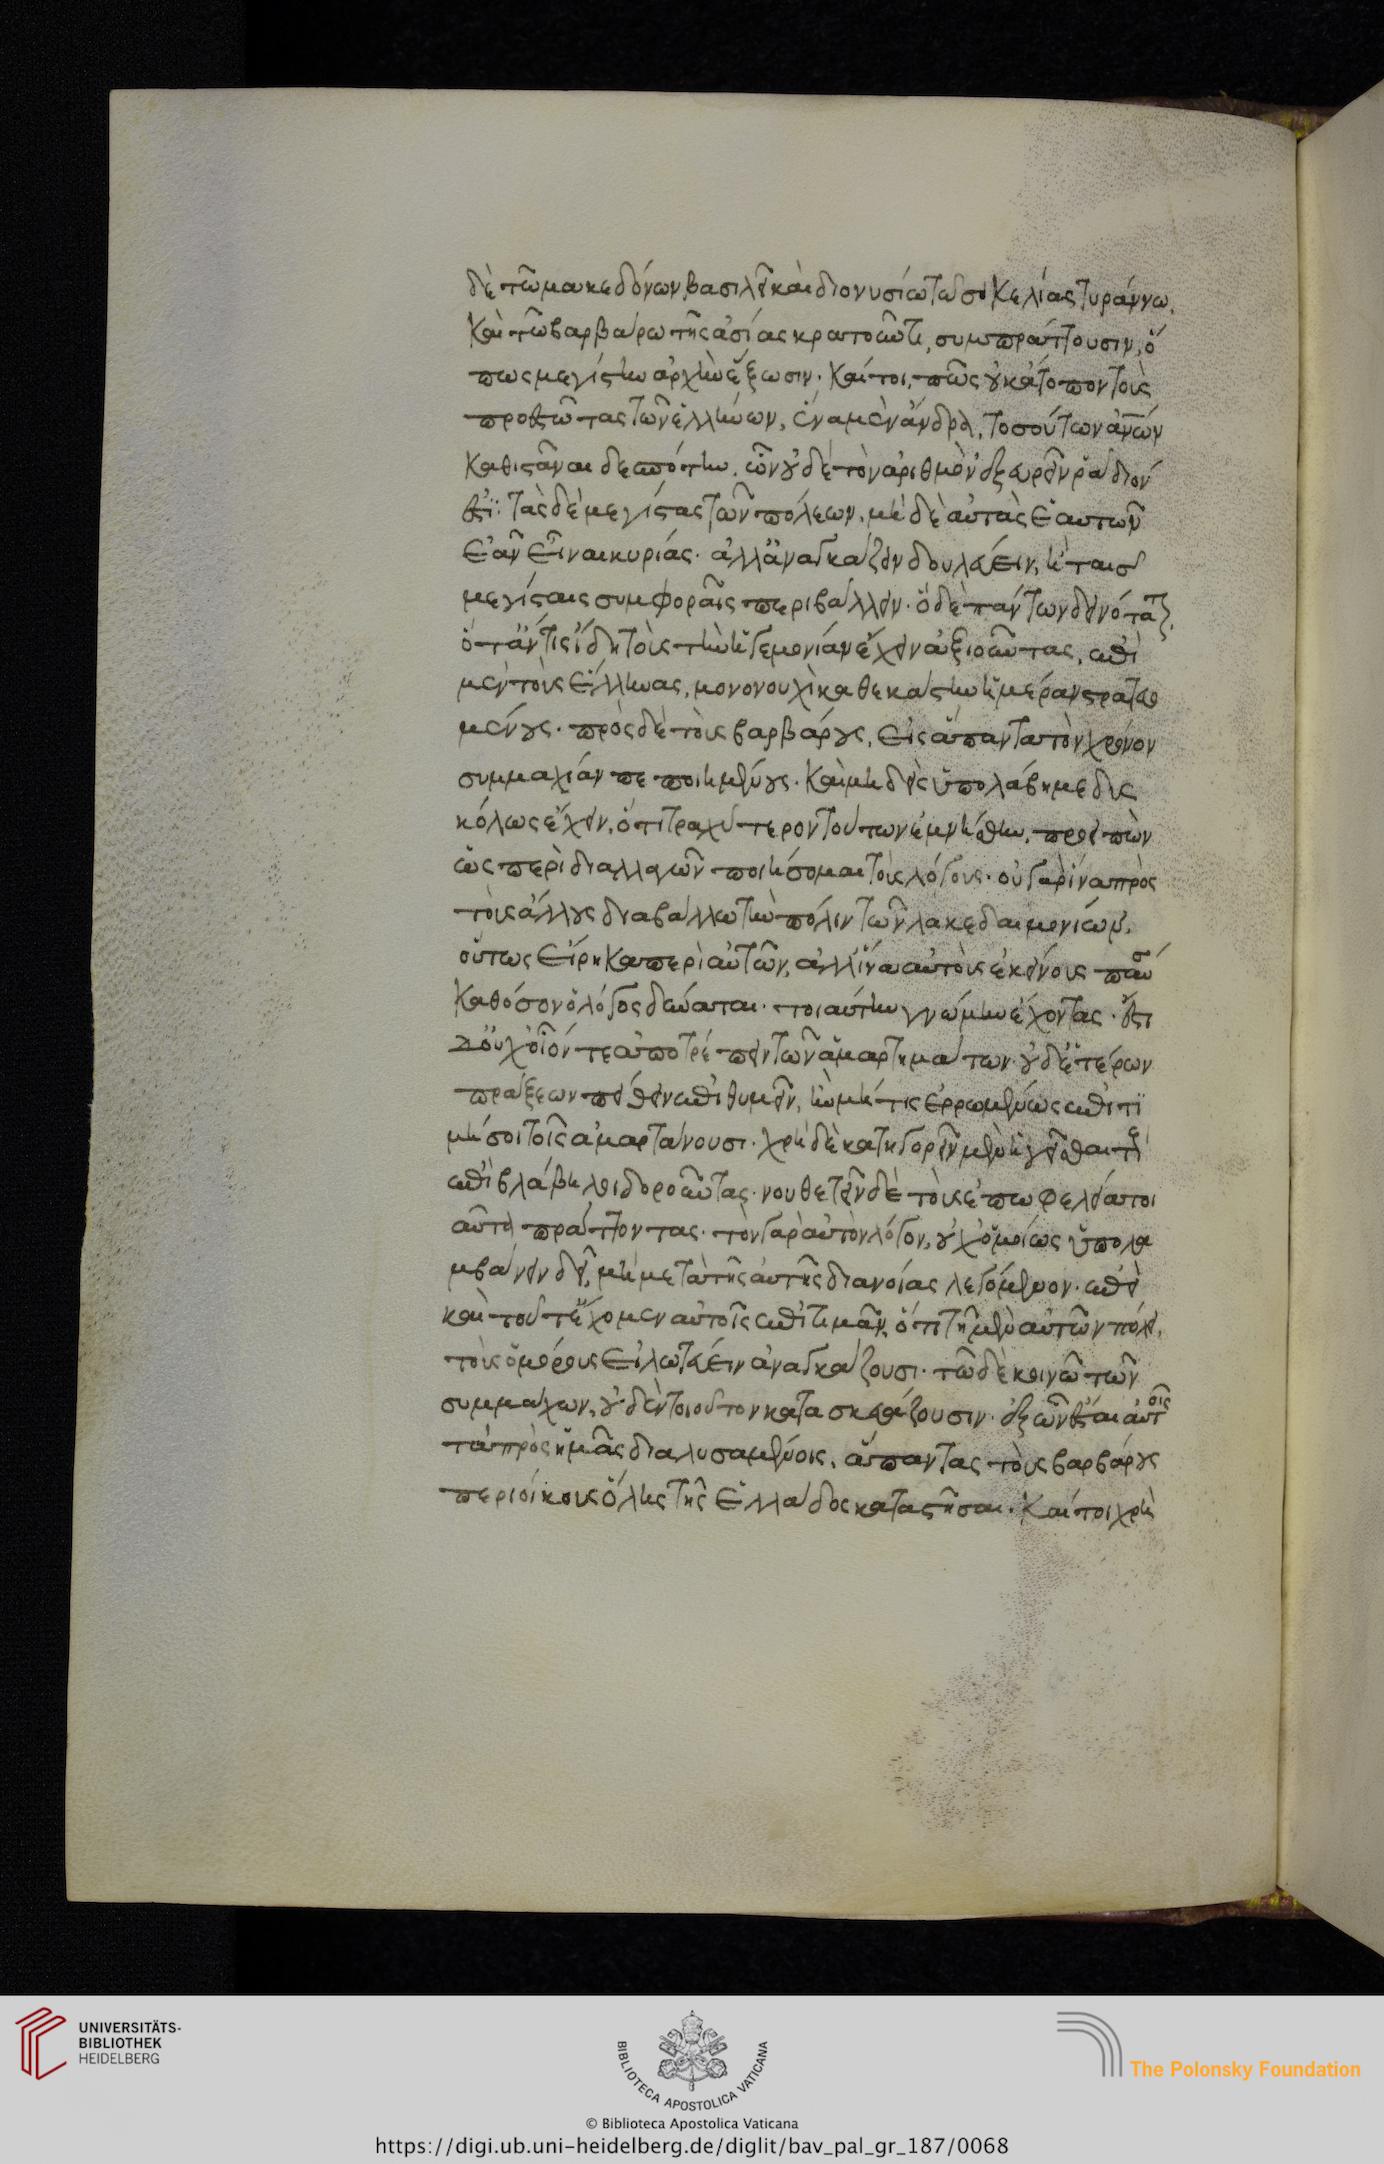 δὲ τῶ μακεδόνων βασιλεῖ καὶ διονυσίω τῶ σικελίας τυράννω,
καὶ τῶ βαρβάρω τῆς ἀσίας κρατοῦντι, συμπράττουσιν, ὅ
πως μεγίστην ἀρχὴν ἕξωσιν. καί τοι, πῶς οὐκ ἄτοπον τοὺς
προεστῶτας τῶν ἑλλήνων, ἕνα μὲν ἄνδρα, τοσούτων ἀνων
καθιστᾶναι δεσπότην. ὧν οὐδὲ τὸν ἀριθμὸν ἐξευρεῖν ῥάδιόν
ἐστι: τὰς δὲ μεγίστας τῶν πόλεων, μὴ δὲ αὐτὰς ἑαυτῶν
ἐᾶν εἶναι κυρίας. ἀλλ' ἀναγκάζειν δουλεύειν, ἢ ταισ
μεγίσταις συμφοραῖς περιβάλλειν. ὃ δὲ πάντων δεινότατ
ὅταν τις ἴδη τοὺς τὴν ἡγεμονίαν ἔχειν ἀξιοῦντας, ἐπὶ
μὲν τοὺς ἕλληνας, μονονουχὶ καθ' ἑκάστην ἡμέραν στρατευο
μένους. πρὸς δὲ τοὺς βαρβάρους, εἰς ἅπαντα τὸν χρόνον
συμμαχίαν πεποιημένους. καὶ μηδεὶς ὑπολάβη με δυς
κόλως ἔχειν, ὅτι τραχύτερον τούτων ἐμνήσθην, προειπὼν
ὡς περὶ διαλλαγῶν ποιήσομαι τοὺς λόγους. οὐ γὰρ ἵνα πρὸς
τοὺς ἄλλους διαβάλλω τὴν πόλιν τῶν λακεδαιμονίων,
οὕτως εἴρηκα περὶ αὐτῶν, ἀλλ' ἵνα αὐτοὺς ἐκείνους παύσ
καθόσον ὁ λόγος δύναται. τοιαύτην γνώμην ἔχοντας. ἔστι
δ' οὐχ οἷόν τε ἀποτρέπειν τῶν ἁμαρτημάτων. οὐδ' ἑτέρων
πράξεων πείθειν ἐπιθυμεῖν, ἢν μή τις ἐρρωμένως ἐπιτι
μήσοι τοῖς ἁμαρτάνουσι. χρὴ δὲ κατηγορεῖν μὲν ἡγεῖσθαι τ
ἐπὶ βλάβη λοιδοροῦντας. νουθετεῖν δὲ τοὺς ἐπ' ὠφελείᾳ τοι
αῦτα πράττοντας. τὸν γὰρ αὐτὸν λόγον, οὐχ ὁμοίως ὑπολα
μβάνειν δεῖ, μὴ μετὰ τῆς αὐτῆς διανοίας λεγόμενον. ἐπεὶ
καὶ τοῦτ' ἔχομεν αὐτοῖς ἐπιτιμᾶν, ὅτι τῇ μὲν αὐτῶν πόλει,
τοὺς ὁμόρους εἱλωτεύειν ἀναγκάζουσι. τῶ δὲ κοινῶ τῶν
συμμάχων, οὐδὲν τοιοῦτον κατασκευάζουσιν. ἐξ ὧν ἔσται αὐτοῖς
τὰ πρὸς ἡμᾶς διαλυσαμένοις, ἅπαντας τοὺς βαρβάρους
περιοίκους ὅλης τῆς ἑλλάδος καταστῆσαι. καί τοι χρὴ
UNIVERSITÄTS-
BIBLIOTHEK
HEIDELBERG
BIBLIOTECA APOSTOLICA VATICANA
The Polonsky Foundation
© Biblioteca Apostolica Vaticana
https://digi.ub.uni-heidelberg.de/diglit/bav_pal_gr_187/0068